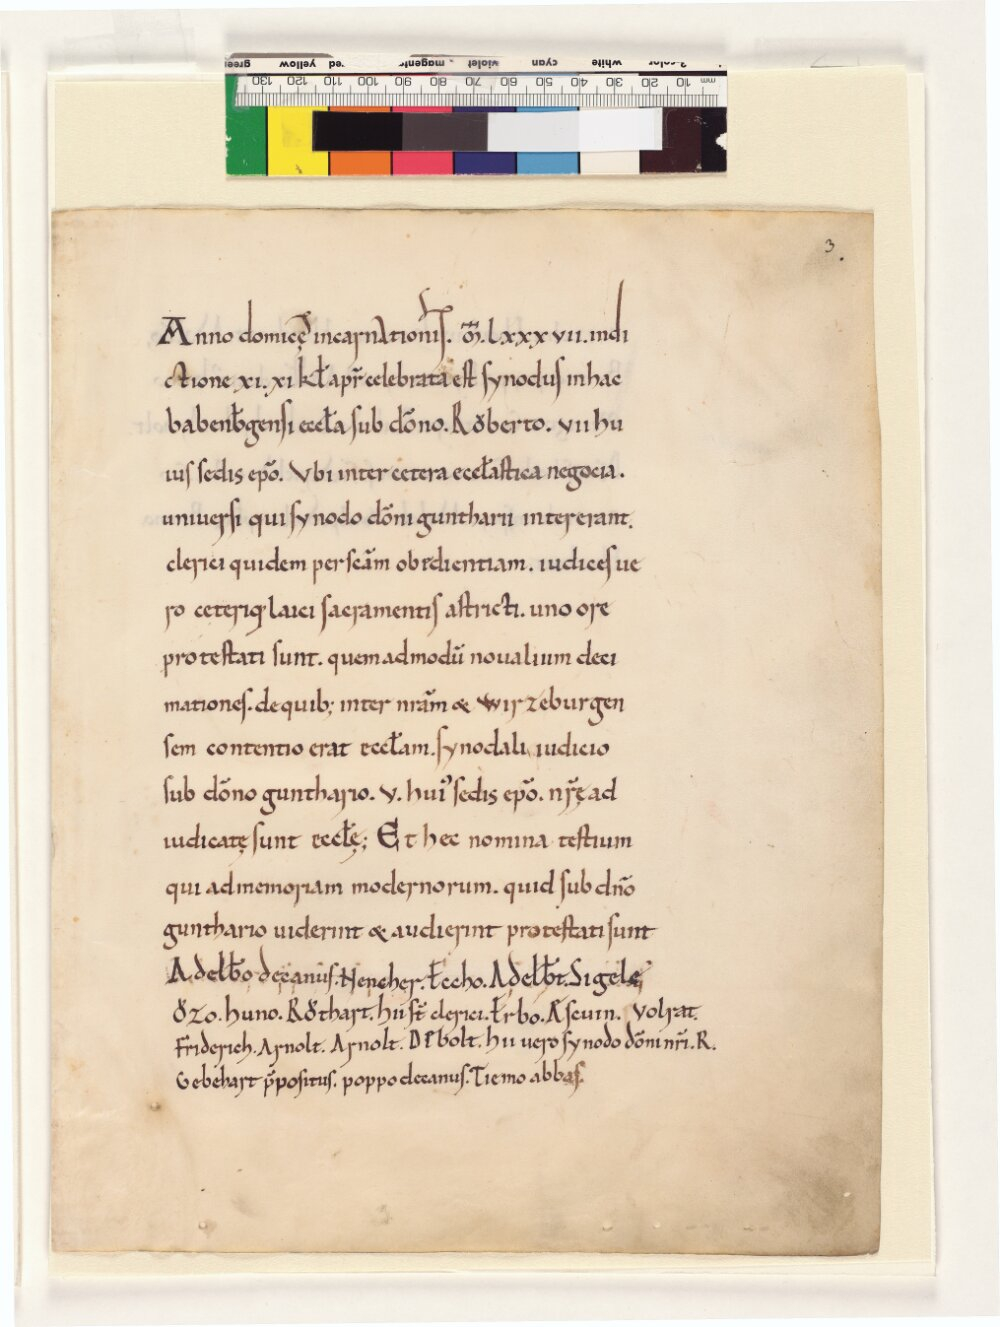 green yellow red magenta violet cyan white 3-color
130 120 110 100 90 80 70 60 50 40 30 20 10 mm
3.
Anno domicę incarnationis. M̄. lxxxvii. indi
ctione xi. xi kł apr̄ celebrata est synodus in hac
babenb̄gensi eccła sub dōno. Rǒberto. vii hu
ius sedis ep̄o. Vbi inter cetera eccłastica negocia.
uniuersi qui synodo dōni guntharii intererant.
clerici quidem per scām obedientiam. iudices ue
ro ceteriq; laici sacramentis astricti. uno ore
protestati sunt. quemadmodū noualium deci
mationes. de quib; inter nrām & wirzeburgen
sem contentio erat eccłam. synodali iudicio
sub dōno gunthario. v. hui' sedis ep̄o. nr̄ę ad
iudicatę sunt eccłę; Et hec nomina testium
qui ad memoriam modernorum. quid sub dnō
gunthario uiderint & audierint protestati sunt
Adelb̄o decanus. Hencher. Echo. Adelb̄t. Sigele
ǒzo. huno. Rǒthart. hii st̄ clerici. Erbo. Ascuin. Volrat.
Friderich. Arnolt. Arnolt. Dibolt. hii uero synodo dōni nr̄i. R.
Gebehart p̄positus. poppo decanus. Tiemo abbas.